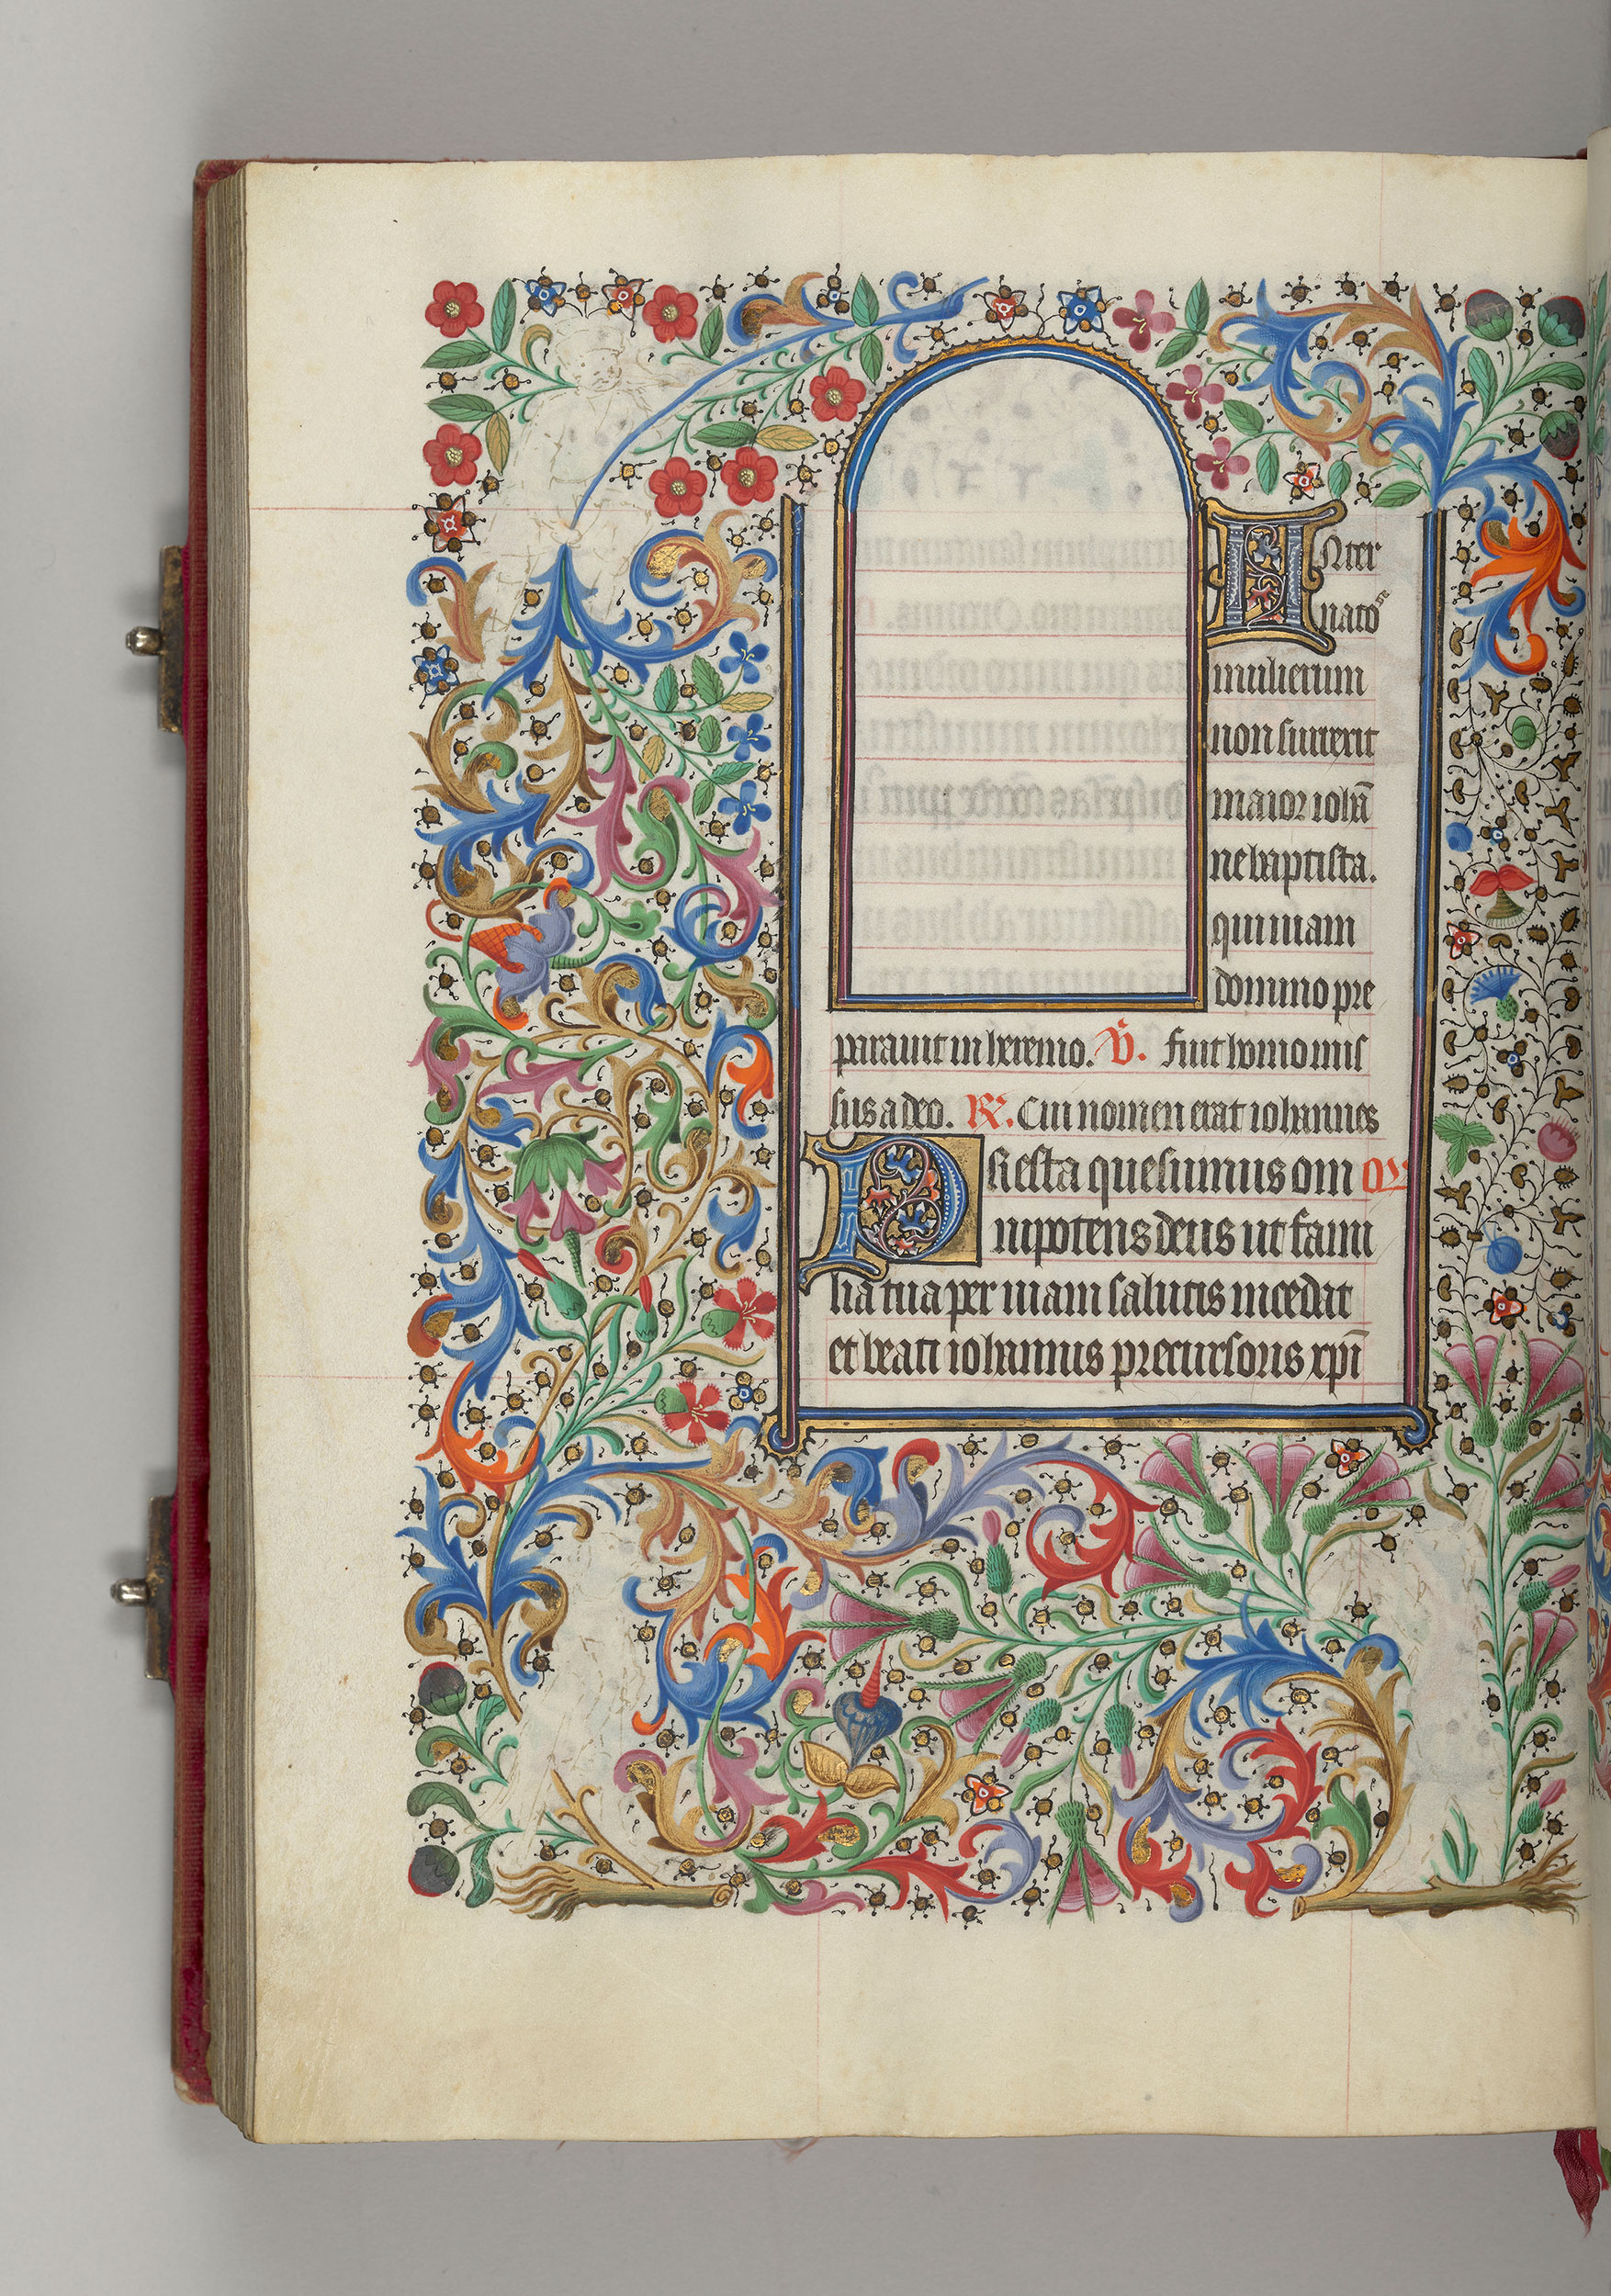 Inter
natos
mulierum
non surrexit
maior iohā
ne baptista.
qui uiam
domino pre
parauit in heremo. V̄. fuit homo mis
sus a deo. R̄. Cui nomen erat iohannes
Presta quesumus om or
nipotens deus ut fami
lia tua per uiam salutis incedat
et beati iohannis precursoris xp̄i